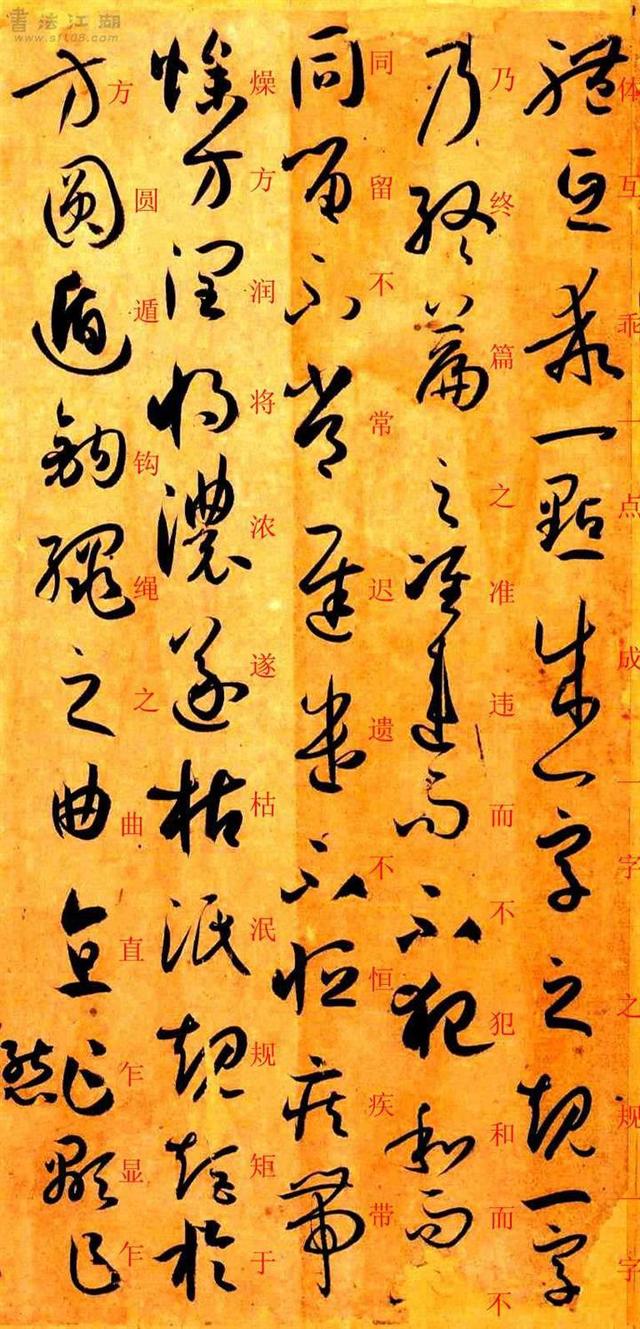 書法江湖
www.sf108.com
體互乖一點成一字之規一字
体互乖一点成一字之规一字
乃終篇之准違而不犯和而
乃终篇之准违而不犯和而不
同留不常遲遺不恒疾帶
同留不常迟遗不恒疾带
燥方潤將濃遂枯泯規矩於
燥方润将浓遂枯泯规矩于
方圓遁鉤繩之曲直乍顯乍
方圆遁钩绳之曲直乍显乍